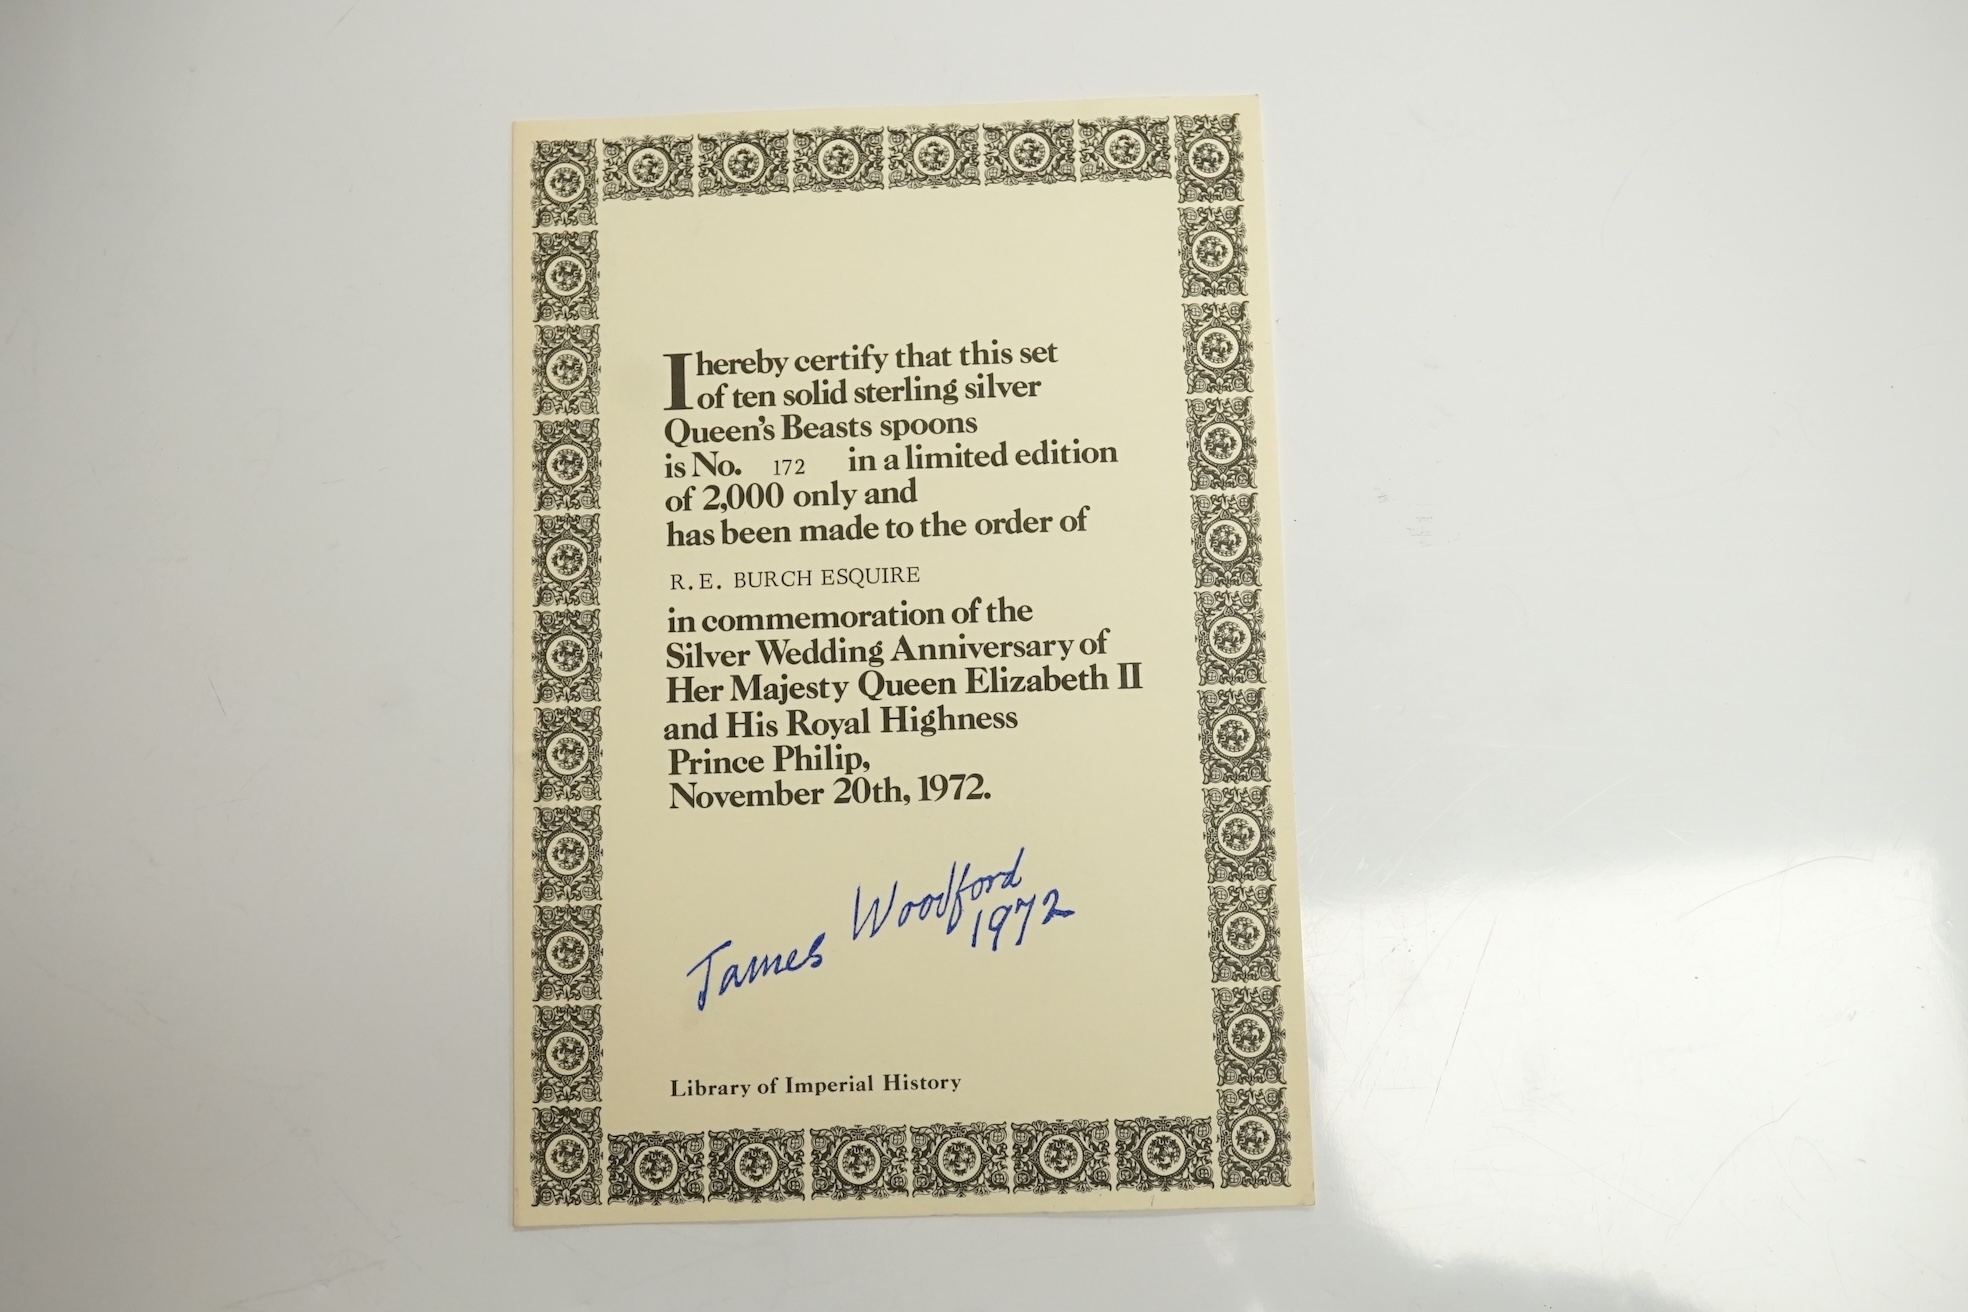 I hereby certify that this set
of ten solid sterling silver
Queen's Beasts spoons
is No. 172 in a limited edition
of 2,000 only and
has been made to the order of
R. E. BURCH ESQUIRE
in commemoration of the
Silver Wedding Anniversary of
Her Majesty Queen Elizabeth II
and His Royal Highness
Prince Philip,
November 20th, 1972.
James Woodford
1972
Library of Imperial History